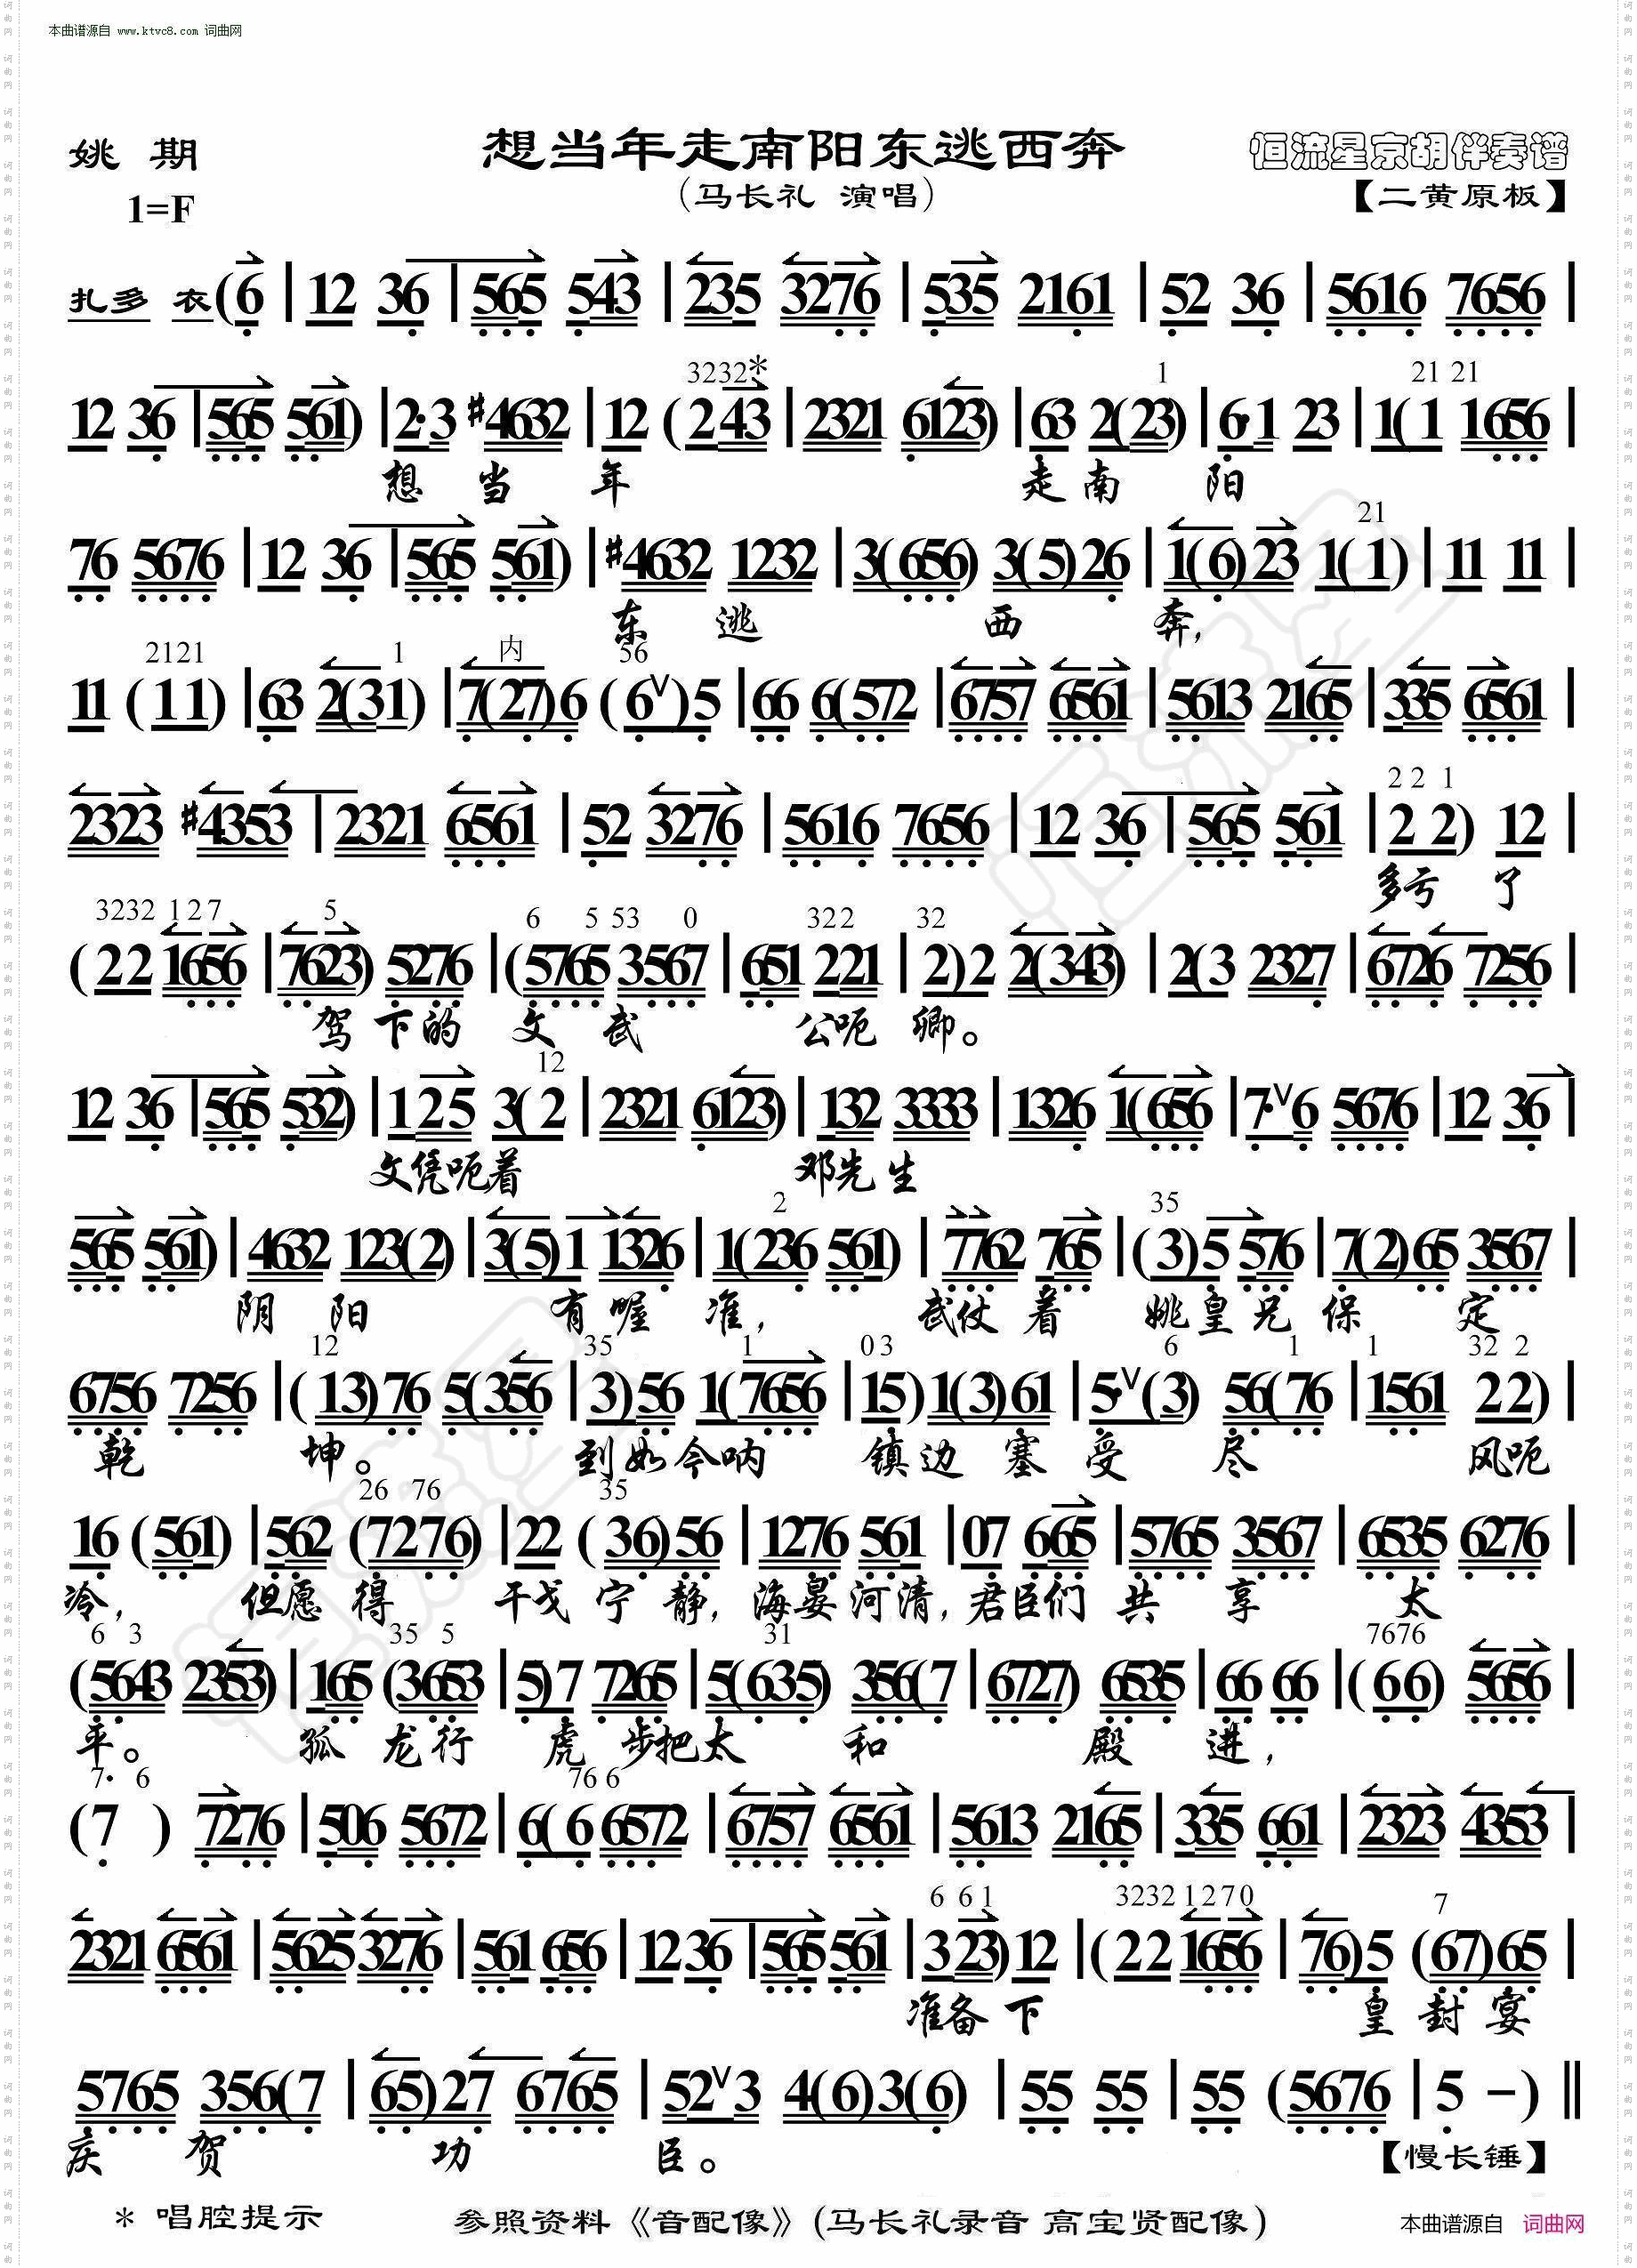 本曲谱源自 www.ktvc8.com 词曲网
姚 期
想当年走南阳东逃西奔
恒流星京胡伴奏谱
1=F
(马长礼 演唱)
【二黄原板】
扎多 衣(6 | 12 36 | 565 543 | 235 3276 | 535 2161 | 52 36 | 5616 7656 |
3232* 1 21 21
12 36 | 565 561) | 2·3 #4632 | 12 (243 | 2321 6123) | 63 2(23) | 6·1 23 | 1(1 1656 |
想 当 年 走 南 阳
21
76 5676 | 12 36 | 565 561) | #4632 1232 | 3(656) 3(5)26 | 1(6)23 1(1) | 11 11 |
东 逃 西 奔,
2121 1 内 56
11 (11) | 63 2(31) | 7(27)6 (6∨)5 | 66 6(572 | 6757 6561 | 5613 2165 | 335 6561 |
2 2 1
2323 #4353 | 2321 6561 | 52 3276 | 5616 7656 | 12 36 | 565 561 | 2 2) 12 |
多亏 了
3232 1 2 7 5 6 5 53 0 322 32
(22 1656 | 7623) 5276 | (5765 3567 | 651 221 | 2)2 2(343) | 2(3 2327 | 6726 7256 |
驾 下的 文 武 公呃 卿。
12
12 36 | 565 532) | 125 3(2 | 2321 6123) | 132 3333 | 1326 1(656 | 7·∨6 5676 | 12 36 |
文凭呃着 邓先生
2 35
565 561) | 4632 123(2) | 3(5)1 1326 | 1(236 561) | 7762 765 | (3)5 576 | 7(2)65 3567 |
阴 阳 有喔 准, 武仗 着 姚皇兄 保 定
12 35 1 0 3 6 1 1 32 2
6756 7256 | (13)76 5(356 | 3)56 1(7656 | 15)1(3)61 | 5·∨(3) 56(76 | 1561 22) |
乾 坤。 到如今呐 镇边 塞 受 尽 风呃
26 76 35
16 (561) | 562 (7276) | 22 (36)56 | 1276 561 | 07 665 | 5765 3567 | 6535 6276 |
冷, 但愿 得 干戈 宁 静, 海晏 河清, 君臣们 共 享 太
6 3 35 5 31 7676
(5643 2353) | 165 (3653 | 5)7 7265 | 5(635) 356(7 | 6727) 6535 | 66 66 | (66) 5656 |
平。 孤 龙行 虎 步把太 和 殿 进,
7· 6 76 6
(7 ) 7276 | 506 5672 | 6(6 6572 | 6757 6561 | 5613 2165 | 335 661 | 2323 4353 |
6 6 1 3232 1 2 7 0 7
2321 6561 | 5625 3276 | 561 656 | 12 36 | 565 561 | 323)12 | (22 1656 | 76)5 (67)65 |
准备下 皇 封 宴
5765 356(7 | 65)27 6765 | 52∨3 4(6)3(6) | 55 55 | 55 (5676 | 5 -) ‖
庆 贺 功 臣。 【慢长锤】
* 唱腔提示 参照资料《音配像》(马长礼录音 高宝贤配像)
本曲谱源自 词曲网